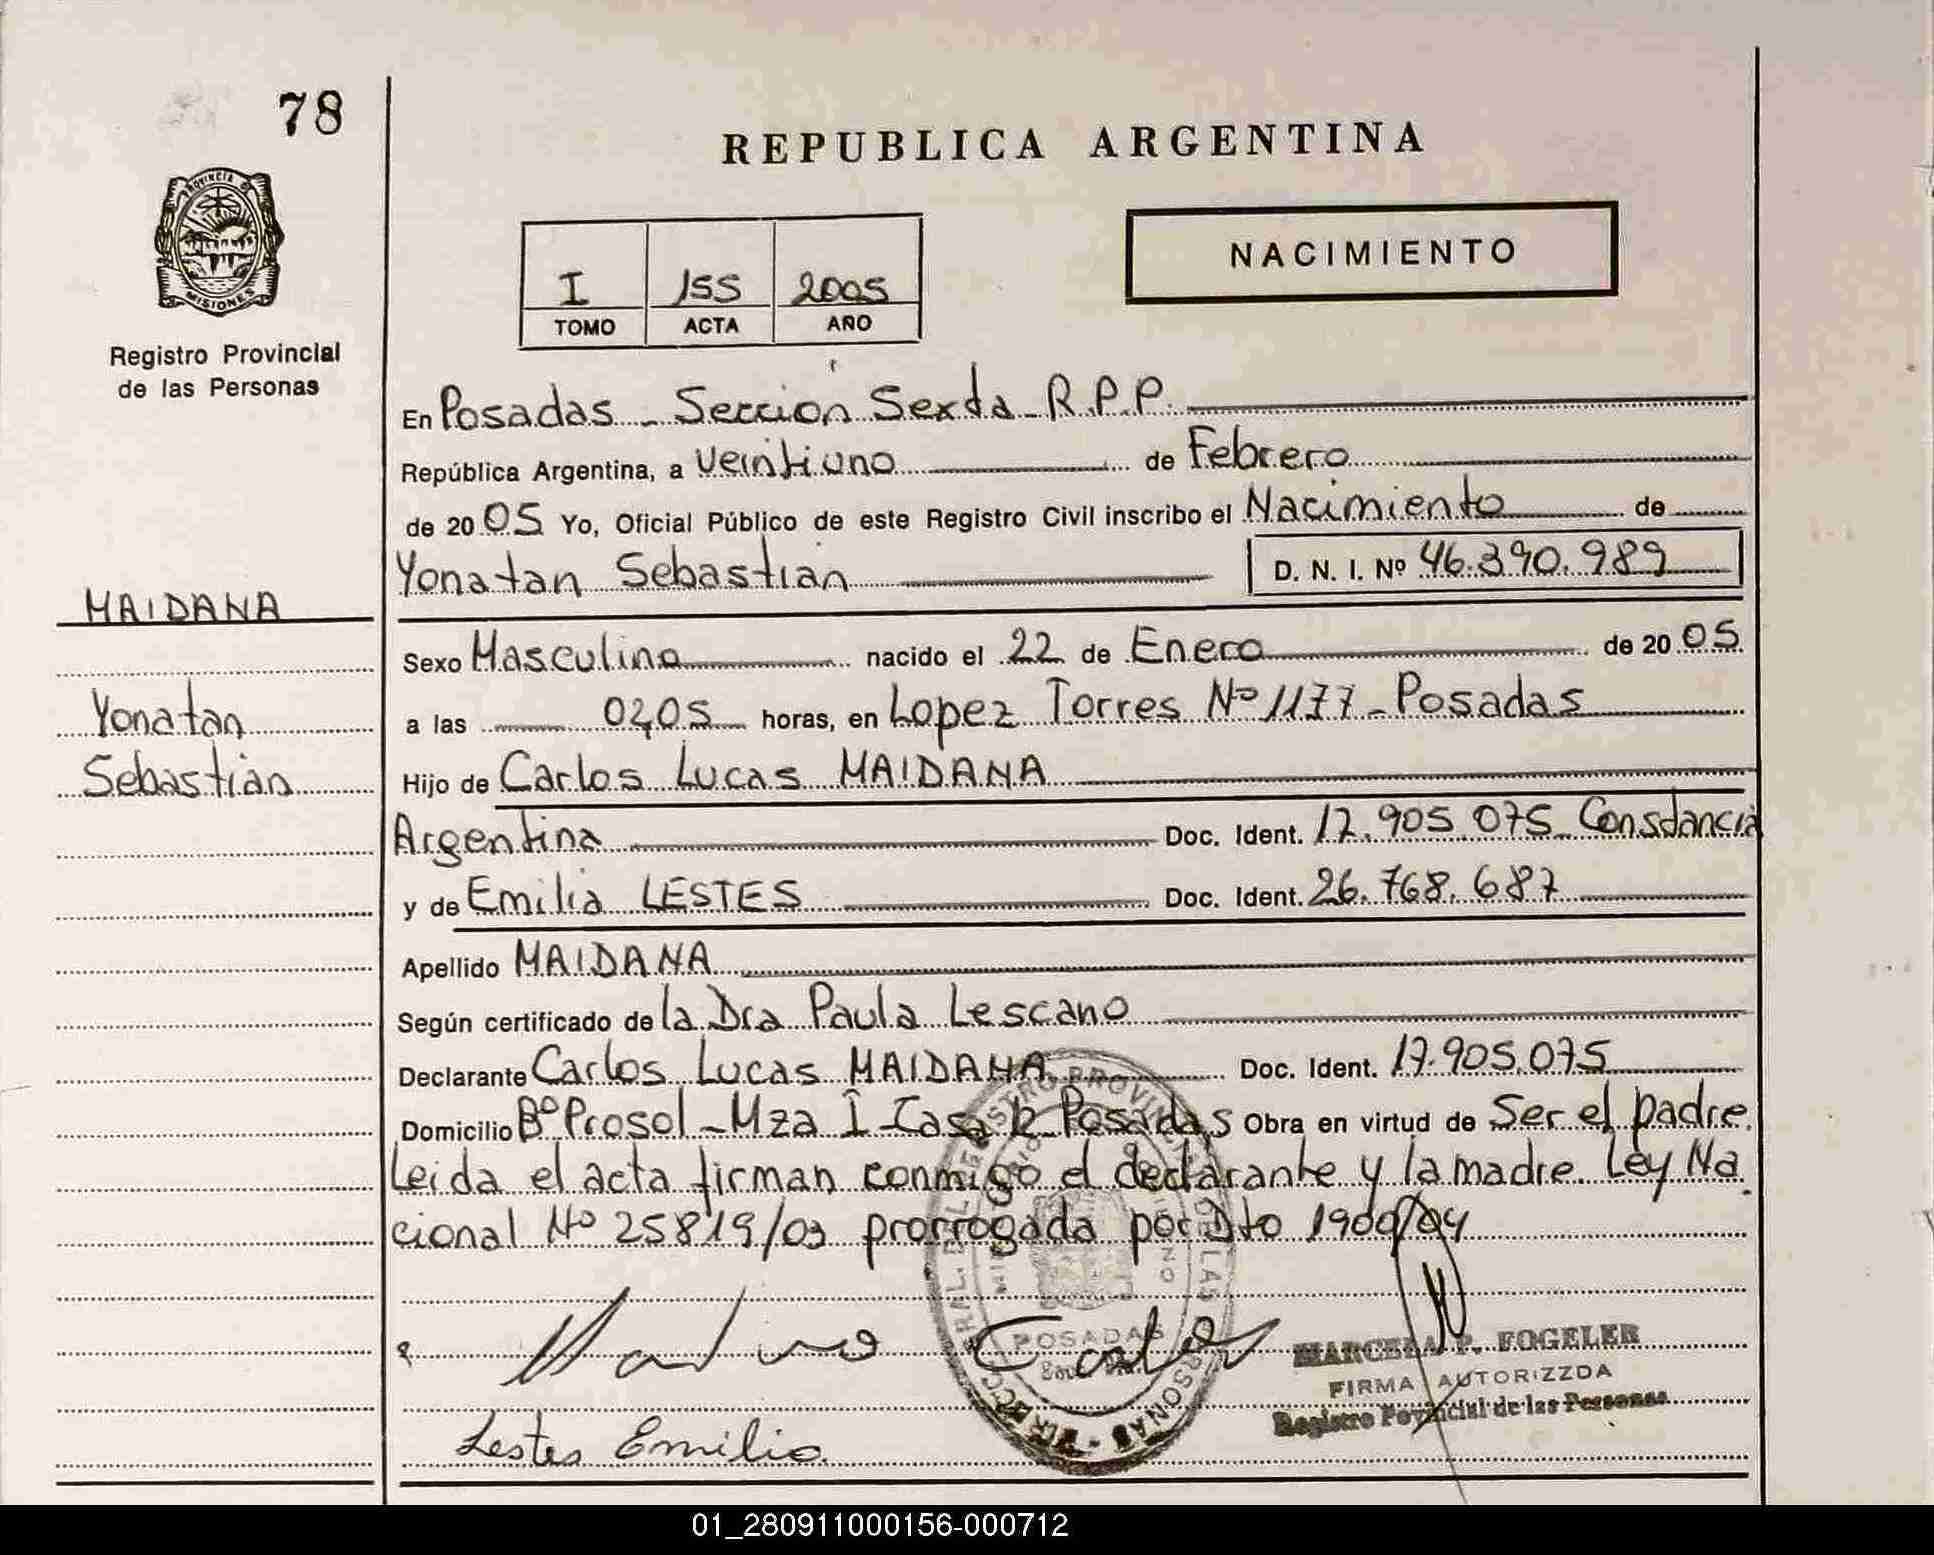 78
REPUBLICA ARGENTINA
PROVINCIA DE
MISIONES
Registro Provincial
de las Personas
I 155 2005
TOMO ACTA AÑO
NACIMIENTO
En Posadas - Sección Sexta R.P.P.
República Argentina, a veintiuno de Febrero
de 2005 Yo, Oficial Público de este Registro Civil inscribo el Nacimiento de
Yonatan Sebastián D. N. I. Nº 46.390.989
MAIDANA
Yonatan
Sebastián
Sexo Masculino nacido el 22 de Enero de 2005
a las 02,05 horas, en Lopez Torres Nº 1177 - Posadas
Hijo de Carlos Lucas MAIDANA
Argentina Doc. Ident. 17.905.075 Constancia
y de Emilia LESTES Doc. Ident. 26.768.687
Apellido MAIDANA
Según certificado de la Dra Paula Lescano
Declarante Carlos Lucas MAIDANA Doc. Ident. 17.905.075
Domicilio Bº Prosol - Mza I Casa 12 Posadas Obra en virtud de Ser el padre.
Leida el acta firman conmigo el declarante y la madre. Ley Na
cional Nº 25819/03 prorrogada por Dto 1900/04
POSADAS
MARCELA P. FOGELER
FIRMA AUTORIZZDA
Registro Provincial de las Personas
Lestes Emilia
01_280911000156-000712